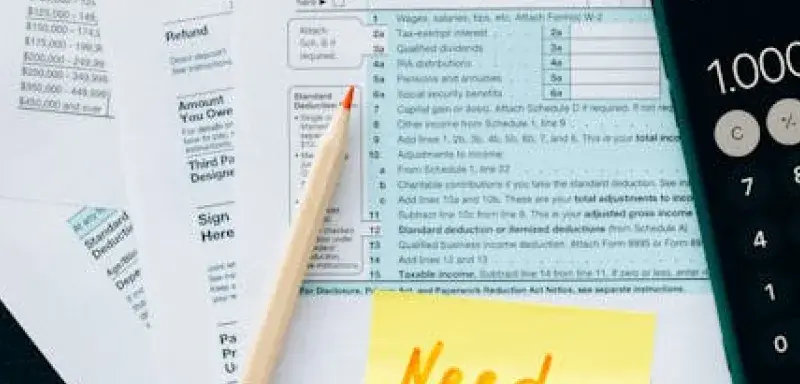 $125,000 - 149,
$150,000 - 174,
$175,000 - 199,9
$200,000 - 249,99
$250,000 - 349,999
$350,000 - 449,999
$450,000 and over
Refund
Direct deposit?
See instructions.
Amount
You Owe
For details on
how to pay,
instructions.
Third Pa
Designe
Sign
Here
Pa
Pr
U
Standard
Deductio
Attach
Sch. B if
required.
Standard
Deduction
1 Wages, salaries, tips, etc. Attach Form(s) W-2
2a Tax-exempt interest 2a
3a Qualified dividends 3a
4a IRA distributions 4a
5a Pensions and annuities 5a
6a Social security benefits 6a
7 Capital gain or (loss). Attach Schedule D if required. If not req
8 Other income from Schedule 1, line 9
9 Add lines 1, 2b, 3b, 4b, 5b, 6b, 7, and 8. This is your total inco
10 Adjustments to income:
a From Schedule 1, line 22
b Charitable contributions if you take the standard deduction. See in
c Add lines 10a and 10b. These are your total adjustments to inco
11 Subtract line 10c from line 9. This is your adjusted gross income
12 Standard deduction or itemized deductions (from Schedule A)
13 Qualified business income deduction. Attach Form 8995 or Form 89
14 Add lines 12 and 13
15 Taxable income. Subtract line 14 from line 11. If zero or less, enter
For Disclosure, Act, and Paperwork Reduction Act Notice, see separate instructions.
Need
1.000
C %
7 8
4
1
0